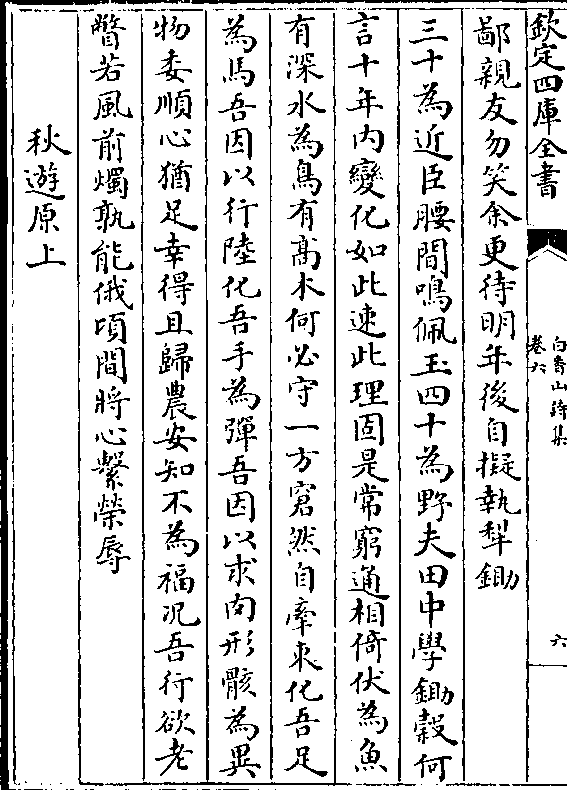 欽定四庫全書
白香山詩集
卷六
六
鄙親友勿笑余更待明年後自擬執犁鋤
三十為近臣腰間鳴佩玉四十為野夫田中學鋤穀何
言十年內變化如此速此理固是常窮通相倚伏為魚
有深水為鳥有高木何必守一方窘然自牽束化吾足
為馬吾因以行陸化吾手為彈吾因以求肉形骸為異
物委順心猶足幸得且歸農安知不為福况吾行欲老
瞥若風前燭孰能俄頃間將心繫榮辱
秋遊原上